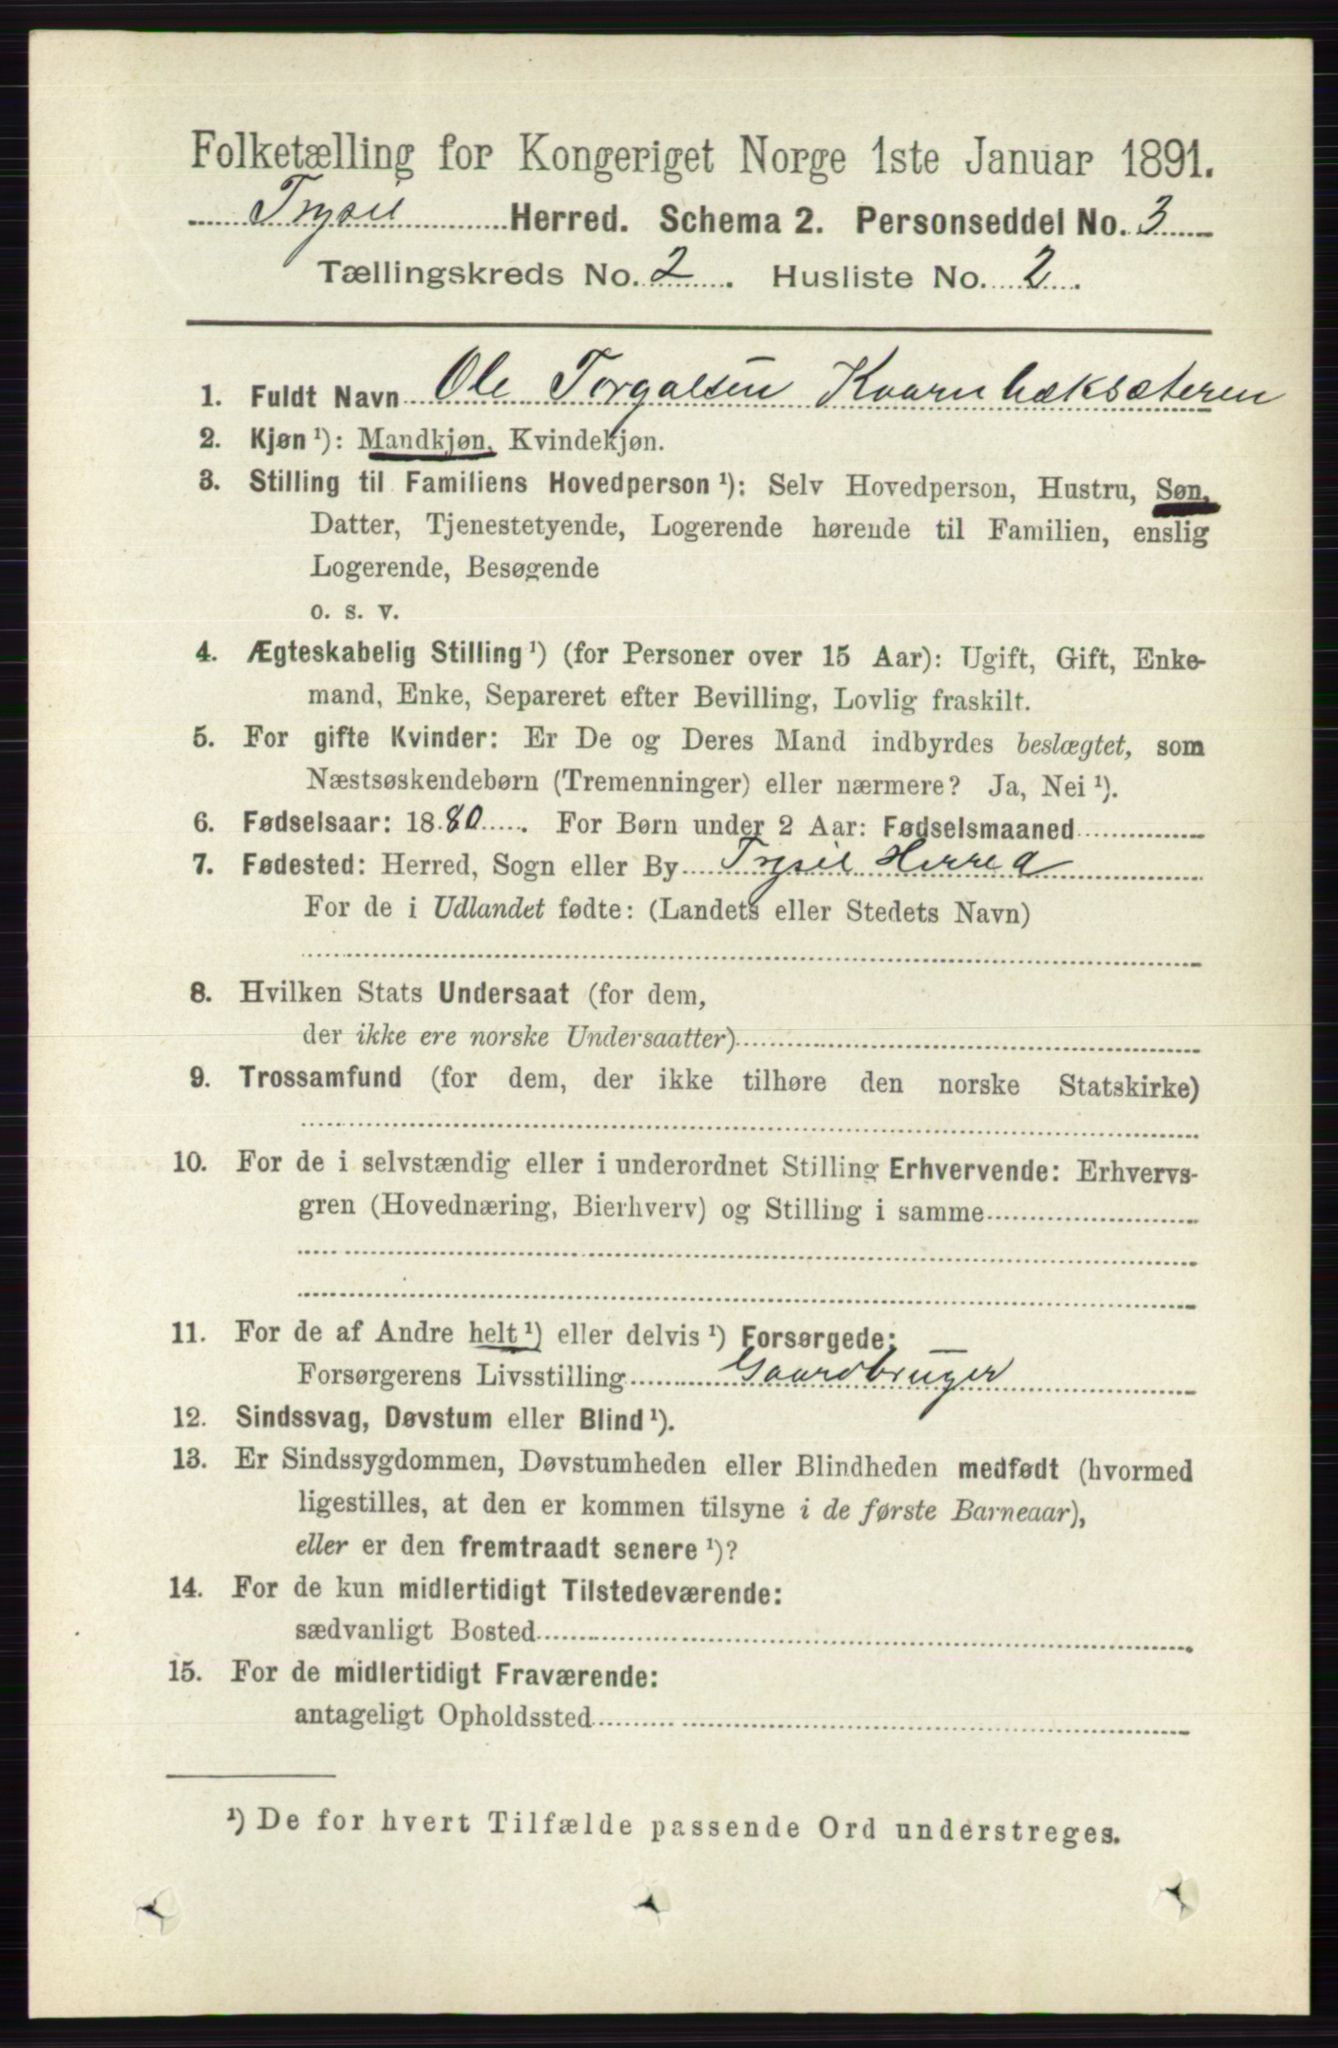 Folketælling for Kongeriget Norge 1ste Januar 1891.
Trysil Herred. Schema 2. Personseddel No. 3
Tællingskreds No. 2. Husliste No. 2.
1. Fuldt Navn Ole Torgalsen Kvarnbæksæteren
2. Kjøn ¹): Mandkjøn, Kvindekjøn.
3. Stilling til Familiens Hovedperson ¹): Selv Hovedperson, Hustru, Søn,
Datter, Tjenestetyende, Logerende hørende til Familien, enslig
Logerende, Besøgende
o. s. v.
4. Ægteskabelig Stilling ¹) (for Personer over 15 Aar): Ugift, Gift, Enke-
mand, Enke, Separeret efter Bevilling, Lovlig fraskilt.
5. For gifte Kvinder: Er De og Deres Mand indbyrdes beslægtet, som
Næstsøskendebørn (Tremenninger) eller nærmere? Ja, Nei ¹).
6. Fødselsaar: 1880. For Børn under 2 Aar: Fødselsmaaned
7. Fødested: Herred, Sogn eller By Trysil Herred
For de i Udlandet fødte: (Landets eller Stedets Navn)
8. Hvilken Stats Undersaat (for dem,
der ikke ere norske Undersaatter)
9. Trossamfund (for dem, der ikke tilhøre den norske Statskirke)
10. For de i selvstændig eller i underordnet Stilling Erhvervende: Erhvervs-
gren (Hovednæring, Bierhverv) og Stilling i samme
11. For de af Andre helt ¹) eller delvis ¹) Forsørgede:
Forsørgerens Livsstilling Gaardbruger
12. Sindssvag, Døvstum eller Blind ¹).
13. Er Sindssygdommen, Døvstumheden eller Blindheden medfødt (hvormed
ligestilles, at den er kommen tilsyne i de første Barneaar),
eller er den fremtraadt senere ¹)?
14. For de kun midlertidigt Tilstedeværende:
sædvanligt Bosted
15. For de midlertidigt Fraværende:
antageligt Opholdssted
¹) De for hvert Tilfælde passende Ord understreges.